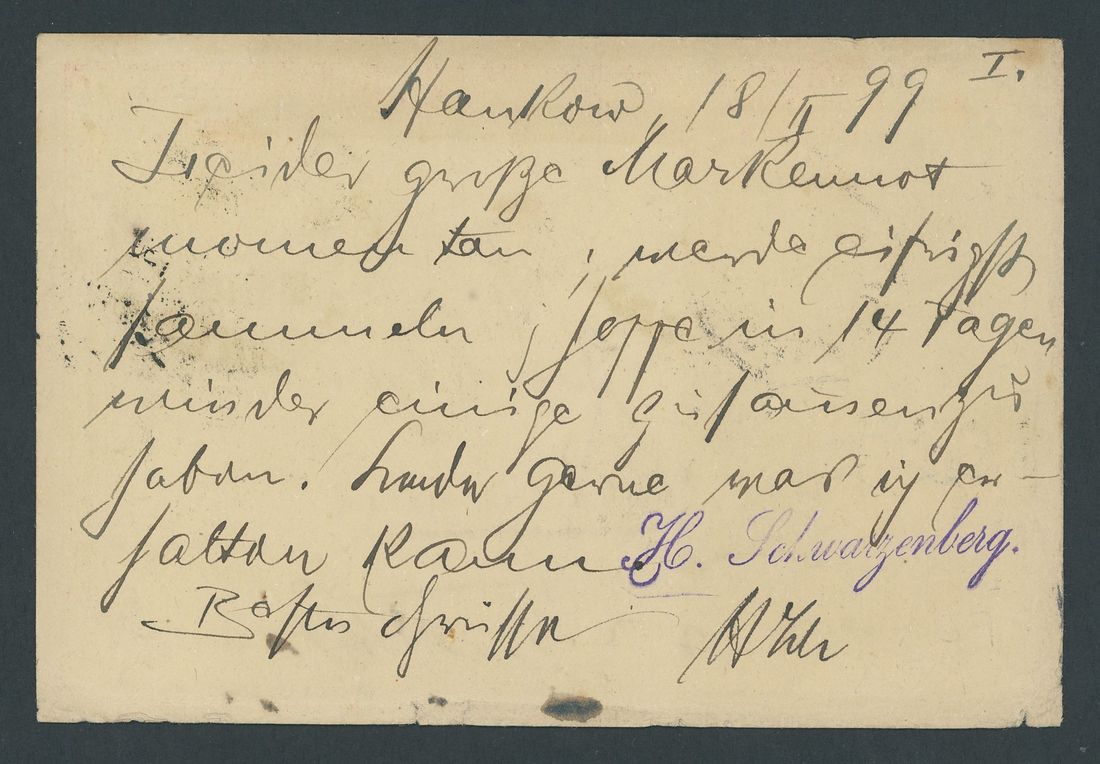 I.
Hankow, 18/II 99
Leider große Markennot
momentan, werde eifrigst
sammeln, hoffe in 14 Tagen
wieder einige zusam̅en zu
haben. Sende gerne was ich er-
halten kann H. Schwarzenberg.
Beste Grüsse